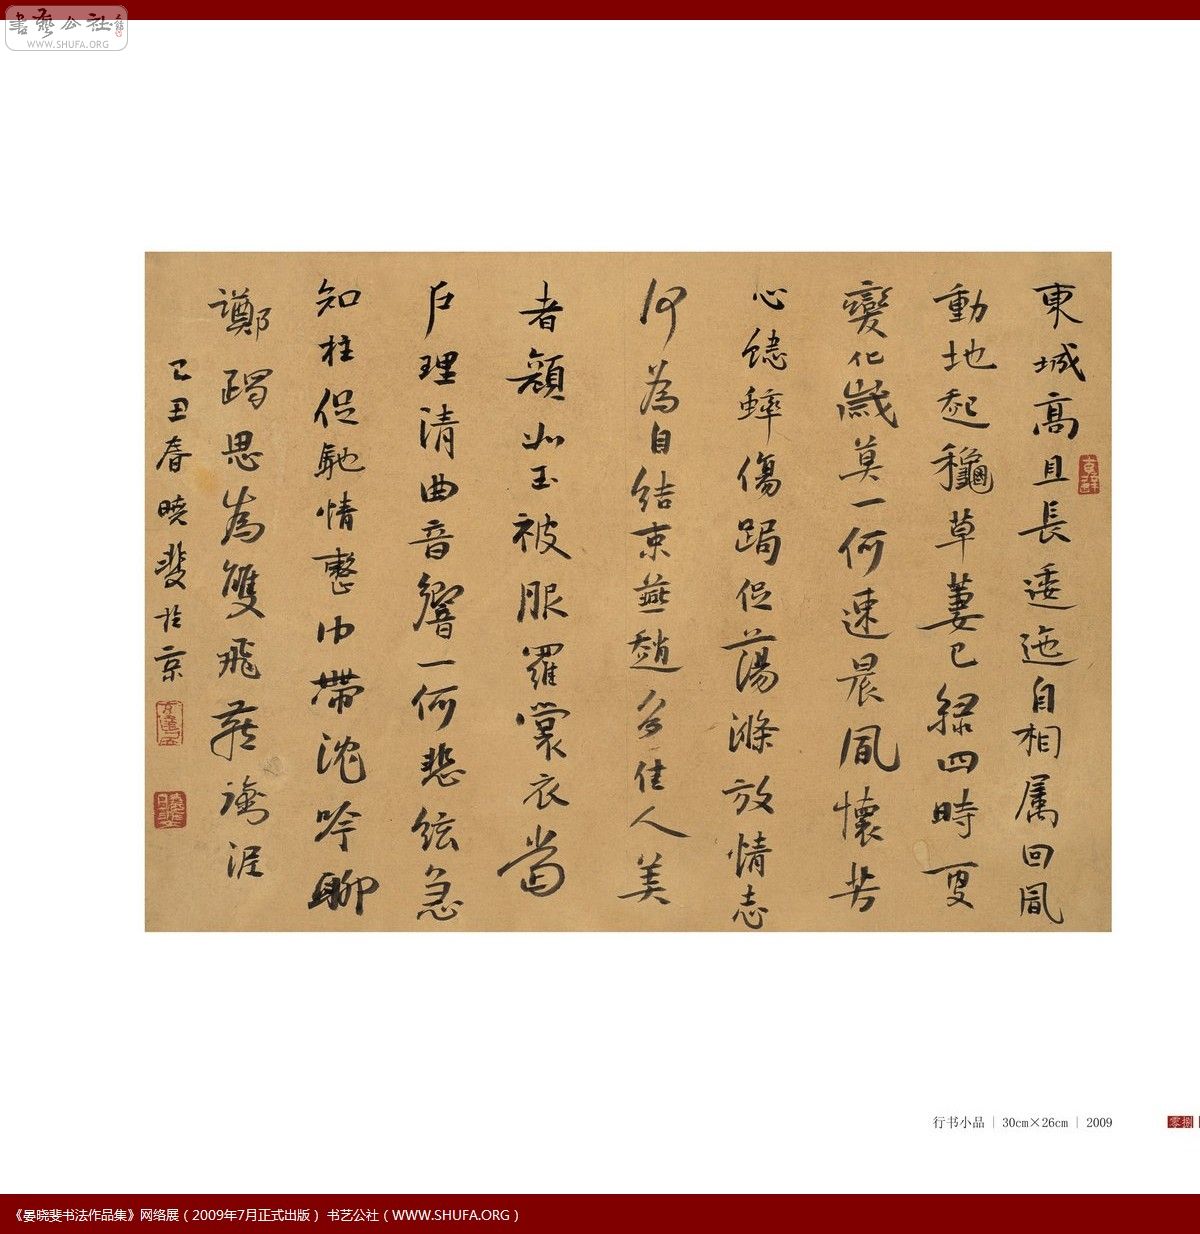 書藝公社
WWW.SHUFA.ORG
東城高且長逶迤自相属回風
動地起穐草萋已緑四時更
變化歲莫一何速晨風懷苦
心蟋蟀傷跼促蕩滌放情志
何為自結束燕趙多佳人美
者顏如玉被服羅裳衣當
户理清曲音響一何悲絃急
知柱促馳情整巾帶沈吟聊
躑躅思為雙飛燕
己丑春曉斐於京
行书小品 | 30cm×26cm | 2009
零捌
《晏晓斐书法作品集》网络展（2009年7月正式出版） 书艺公社（WWW.SHUFA.ORG）